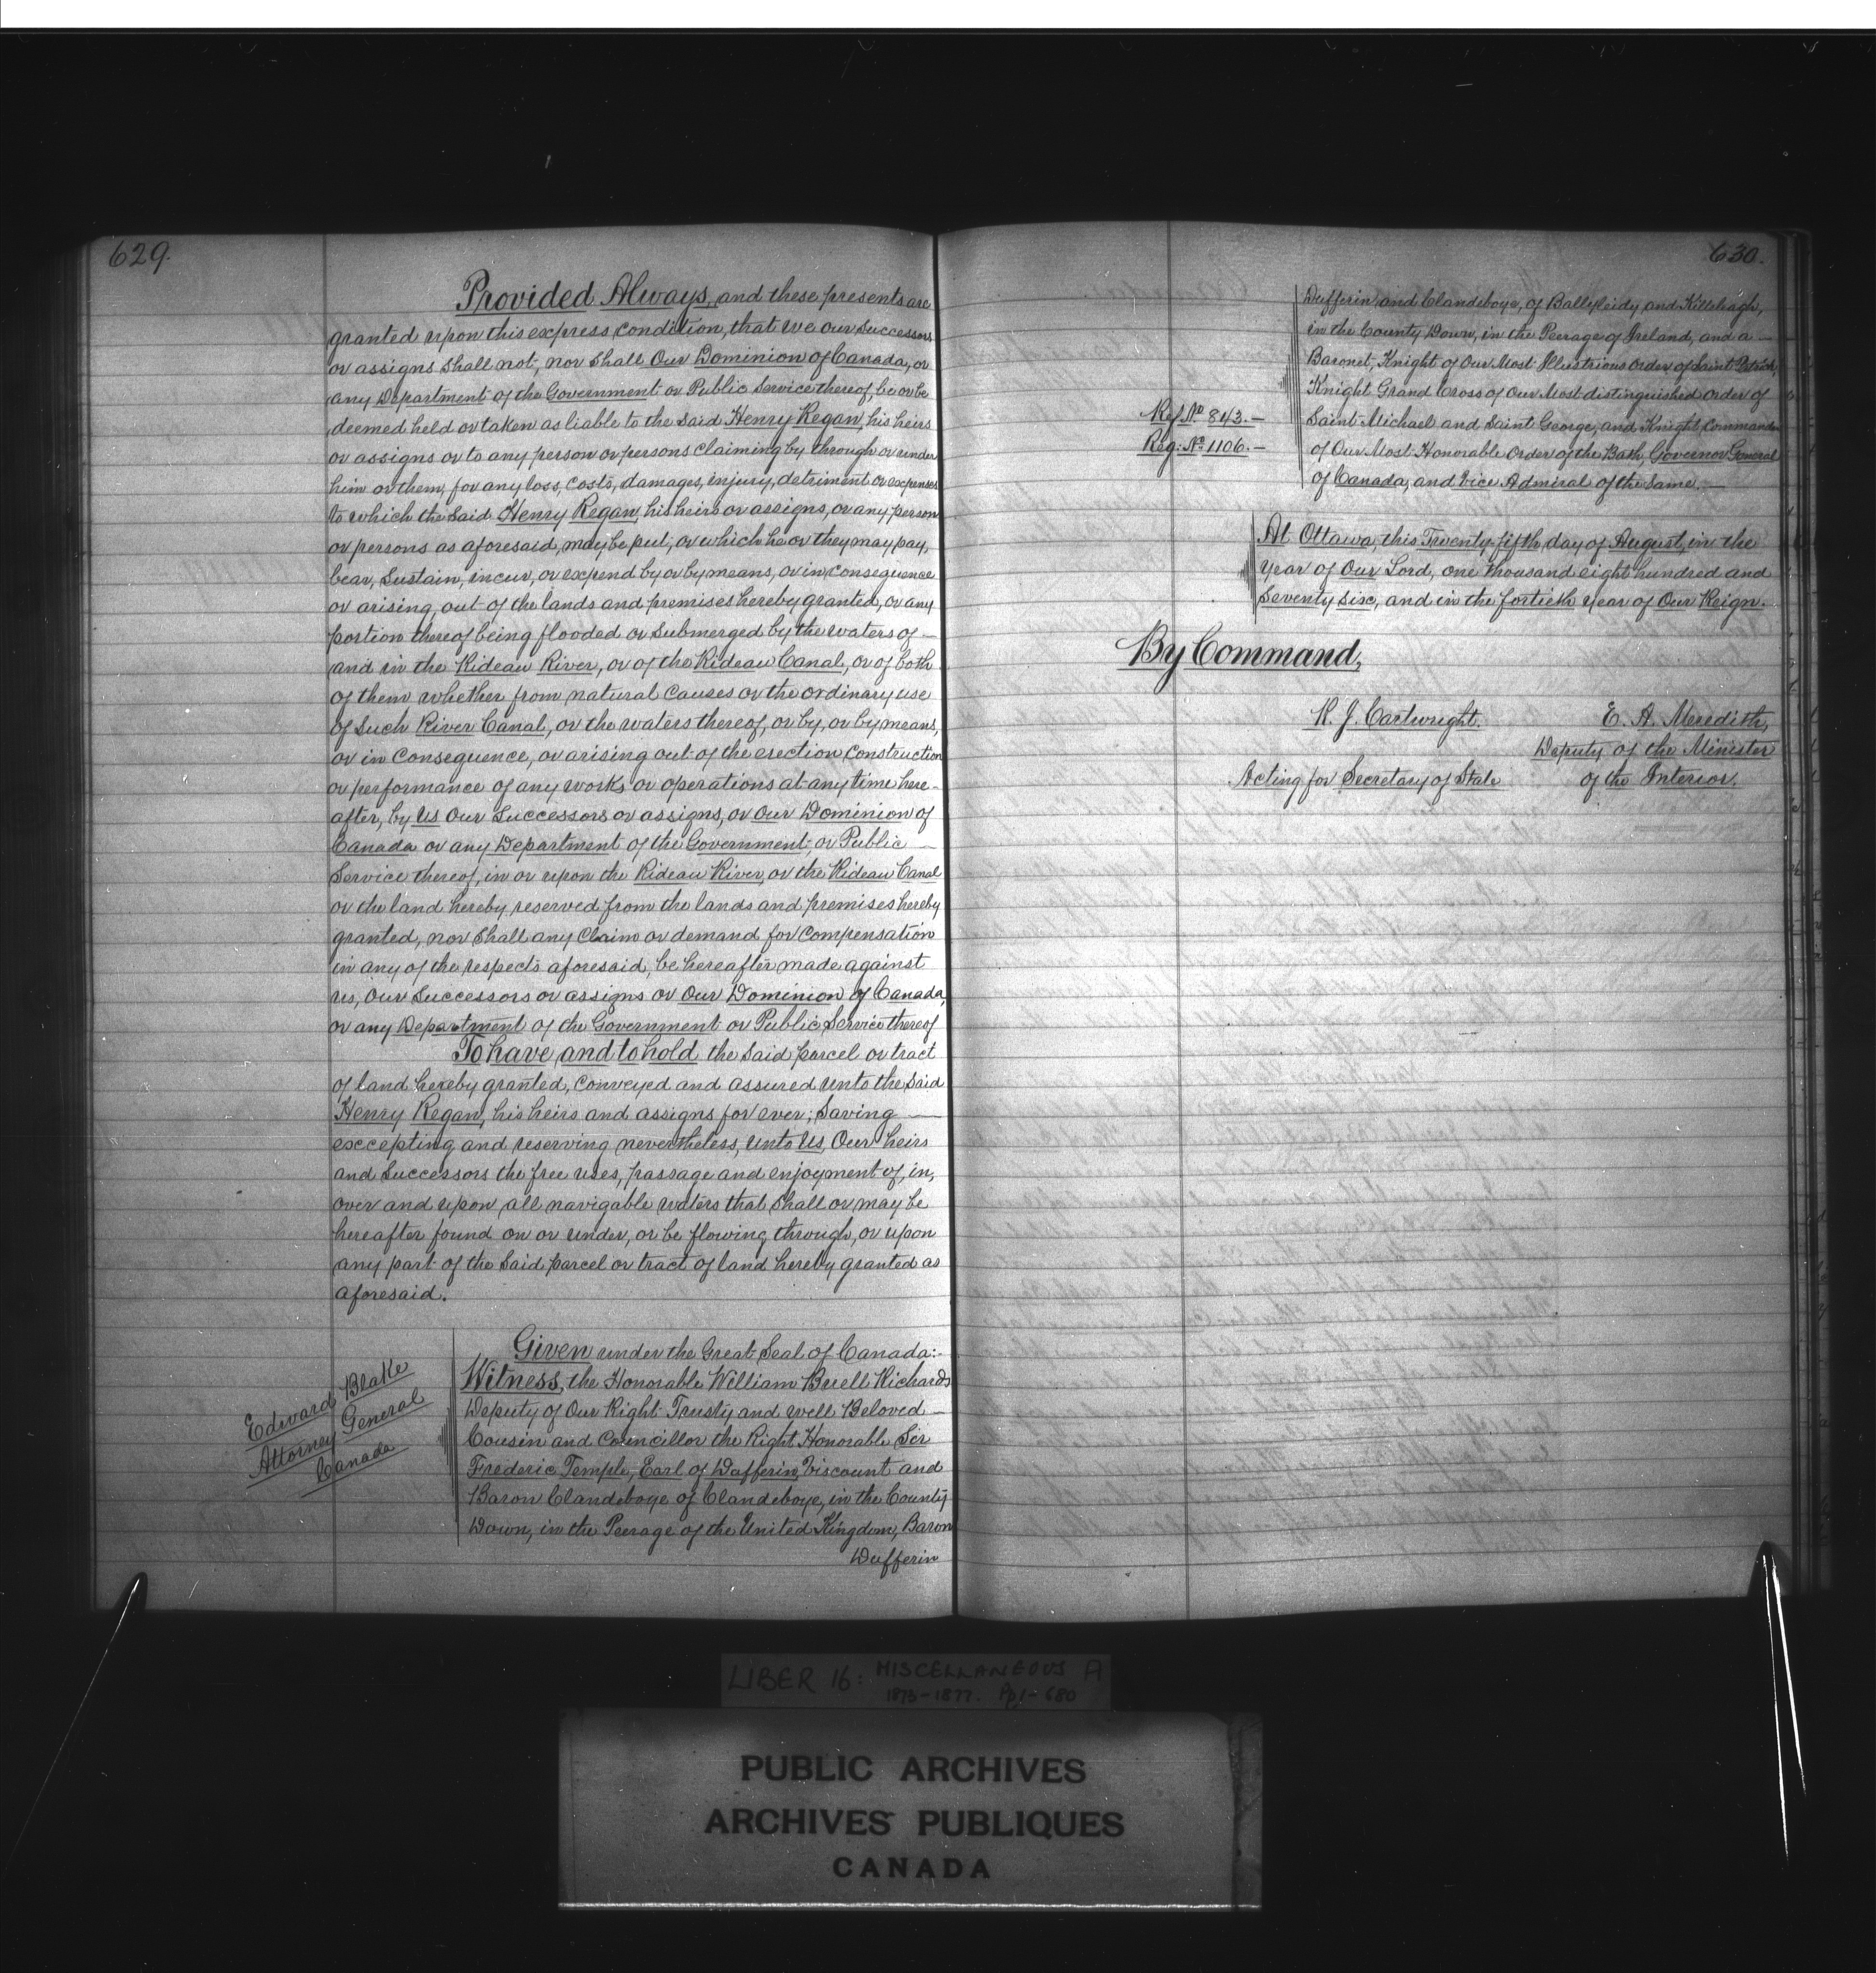 629.
Provided Always, and these presents are
granted upon this express condition, that we our Successors
or assigns shall not, nor shall Our Dominion of Canada, or
any Department of the Government or Public Service thereof, be or be
deemed held or taken as liable to the said Henry Regan, his heirs
or assigns or to any person or persons claiming by through or under
him or them, for any loss, costs, damages, injury, detriment or expenses
to which the said Henry Regan, his heirs or assigns, or any person
or persons as aforesaid, may be put, or which he or they may pay,
bear, sustain, incur, or expend by or by means, or in consequence
or arising out of the lands and premises hereby granted, or any
portion thereof being flooded or submerged by the waters of —
and in the Rideau River, or of the Rideau Canal, or of both
of them whether from natural causes or the ordinary use
of such River Canal, or the waters thereof, or by, or by means,
or in consequence, or arising out of the erection construction
or performance of any works or operations at any time here-
after, by Us Our Successors or assigns, or Our Dominion of
Canada or any Department of the Government, or Public —
Service thereof, in or upon the Rideau River, or the Rideau Canal
or the land hereby reserved from the lands and premises hereby
granted, nor shall any claim or demand for compensation
in any of the respects aforesaid, be hereafter made against
us, Our Successors or assigns or Our Dominion of Canada,
or any Department of the Government or Public Service thereof
To have and to hold the said parcel or tract
of land hereby granted, conveyed and assured unto the said
Henry Regan, his heirs and assigns for ever; Saving —
exccepting and reserving nevertheless, unto Us, Our heirs
and Successors the free uses, passage and enjoyment of, in,
over and upon all navigable waters that shall or may be
hereafter found on or under, or be flowing through, or upon
any part of the said parcel or tract of land hereby granted as
aforesaid.
Given under the Great Seal of Canada:-
Witness, the Honorable William Buell Richards
Deputy of Our Right Trusty and well Beloved —
Cousin and Councillor the Right Honorable Sir
Frederic Temple, Earl of Dufferin, Viscount and
Baron Clandeboye of Clandeboye, in the County
Down, in the Peerage of the United Kingdom, Baron
Dufferin
Edward Blake
Attorney General
Canada
630.
Dufferin and Clandeboye, of Ballyleidy and Killeleagh,
in the County Down, in the Peerage of Ireland, and a —
Baronet, Knight of Our Most Illustrious Order of Saint Patrick,
Knight Grand Cross of Our Most distinguished Order of
Saint Michael and Saint George, and Knight Commander
of Our Most Honorable Order of the Bath, Governor General
of Canada, and Vice Admiral of the same. —
Ref. No 843.—
Reg. No 1106.—
At Ottawa, this Twenty-fifth day of August, in the
Year of Our Lord, one thousand eight hundred and
Seventy six, and in the fortieth year of Our Reign.
By Command,
R. J. Cartwright.
Acting for Secretary of State
E. A. Meredith,
Deputy of the Minister
of the Interior.
LIBER 16: MISCELLANEOUS A
1873-1877. Pp1-680
PUBLIC ARCHIVES
ARCHIVES PUBLIQUES
CANADA